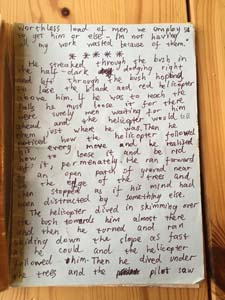 worthless band of men we employ
get him or else - I'm not having
my work wasted because of them.
He screached through the bush in
the half-dark dodging right
left through the bush hoping
to lose the black and red helicopter
above him. If he was to reach the
he must loose it for there
were surely men waiting for him
ahead and the helicopter would tell
just where he was. Then he
noticed how the helicopter followed
every move and he realized
how to loose it and be rid
of it, permenately. He ran forward
to an open patch of ground near
the edge of the trees and
then stopped as if his mind had
been distracted by something else.
The helicopter dived in skimming over
the bush towards him almost there
and then he turned and ran
sliding down the slope as fast
as he could and the helicopter
followed him. Then he dived under
the trees and the pilot saw